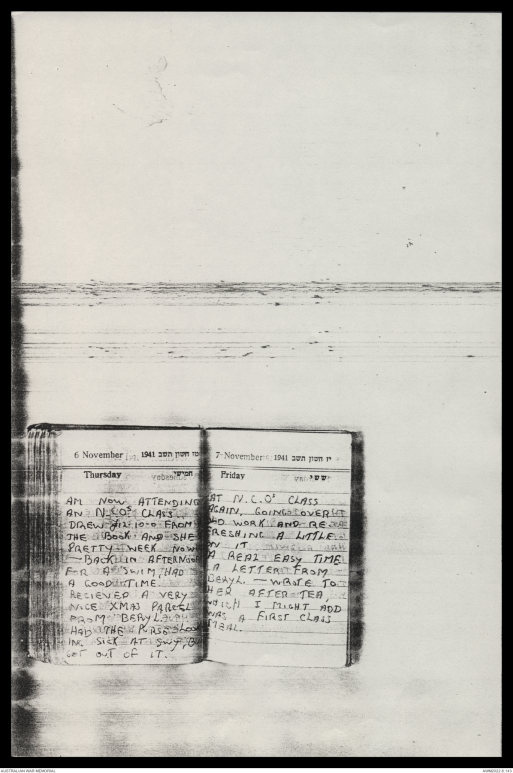 6 November 1941 טז חשון תשב
Thursday חמישי
AM NOW ATTENDING
AN N.C.Os CLASS.
DREW £12-10-0 FROM
THE BOOK AND SHE
PRETTY WEEK NOW
— BACK IN AFTERNOON
FOR A SWIM, HAD
A GOOD TIME
RECIEVED A VERY
NICE XMAS PARCEL
FROM BERYL
HAD THE PURSE
SICK AT
GOT OUT OF IT.
7 November 1941 יז חשון תשב
Friday ששי
AT N.C.Os CLASS
AGAIN, GOING OVER
OLD WORK AND RE
FRESHING A LITTLE
ON IT
A REAL EASY TIME
A LETTER FROM
BERYL. — WROTE TO
HER AFTER TEA,
WHICH I MIGHT ADD
WAS A FIRST CLASS
MEAL.
AUSTRALIAN WAR MEMORIAL